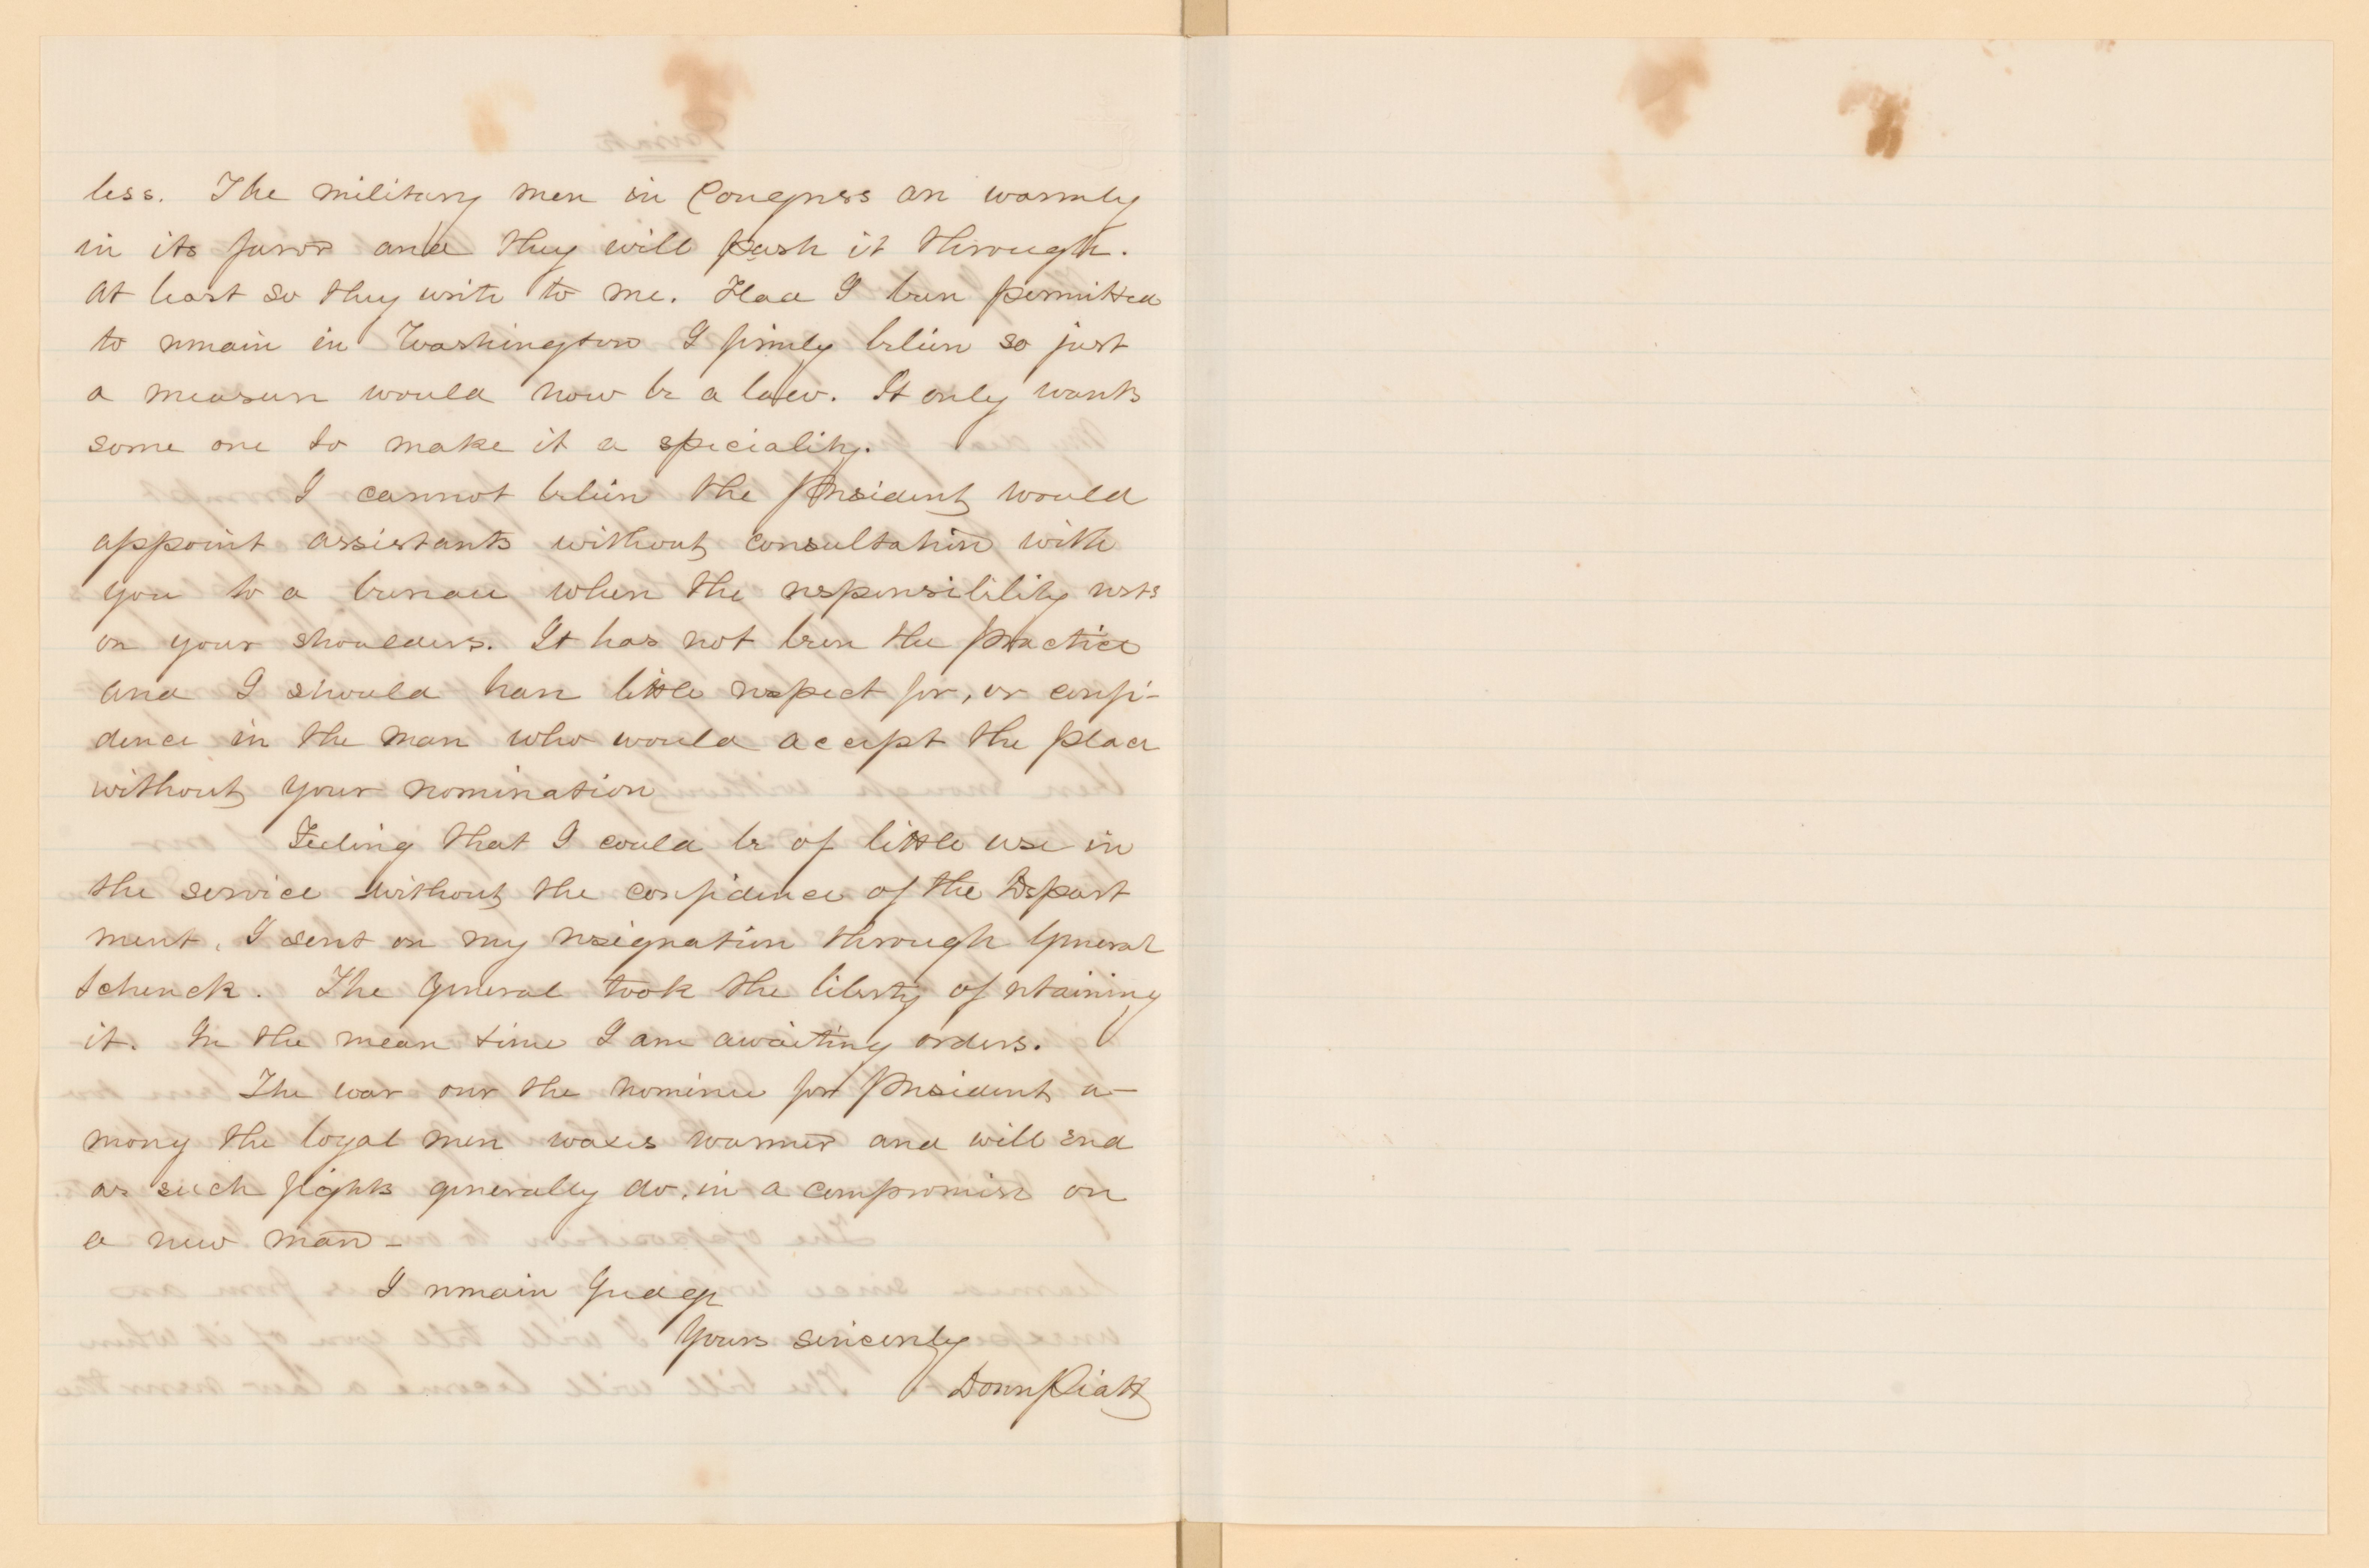 less. The military men in Congress are warmly
in its favor and they will push it through.
At least so they write to me. Had I been permitted
to remain in Washington I firmly believe so just
a measure would now be a law. It only wants
some one to make it a speciality.
I cannot believe the President would
appoint assistants without consultation with
you to a bureau when the responsibility rests
on your shoulders. It has not been the practice
and I should have little respect for, or confi-
dence in the man who would accept the place
without your nomination
Feeling that I could be of little use in
the service without the confidence of the Depart
ment, I sent on my resignation through General
Schenck. The General took the liberty of retaining
it. In the mean time I am awaiting orders.
The war over the nominee for President a-
mong the loyal men waxes warmer and will end
as such fights generally do, in a compromise on
a new man-
I remain Judge
Yours sincerely
Donn Piatt